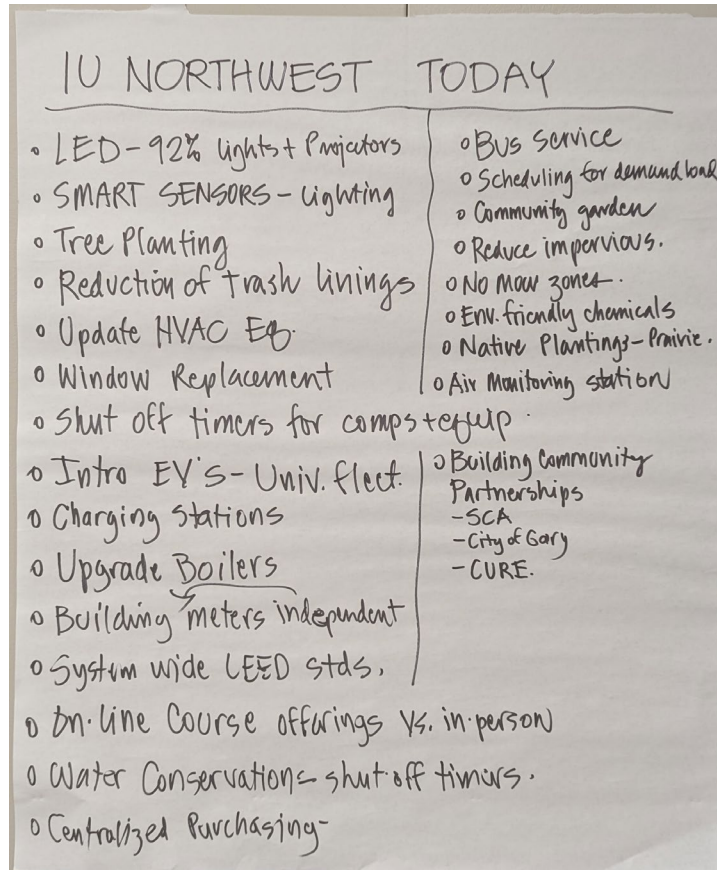 IU NORTHWEST TODAY
o LED-92% lights + Projectors
o SMART SENSORS - Lighting
o Tree Planting
o Reduction of trash linings
o Update HVAC Eq.
o Window Replacement
o Shut off timers for comps + equip.
o Intro EV's - Univ. fleet.
o Charging Stations
o Upgrade Boilers
o Building meters independent
o System wide LEED stds.
o On-line Course offerings vs. in-person
o Water Conservation - shut-off timers.
o Centralized Purchasing -
o Bus Service
o Scheduling for demand load
o Community garden
o Reduce impervious.
o No Mow zones.
o Env. friendly chemicals
o Native Plantings - Prairie.
o Air Monitoring station
o Building Community
Partnerships
- SCA
- City of Gary
- CURE.